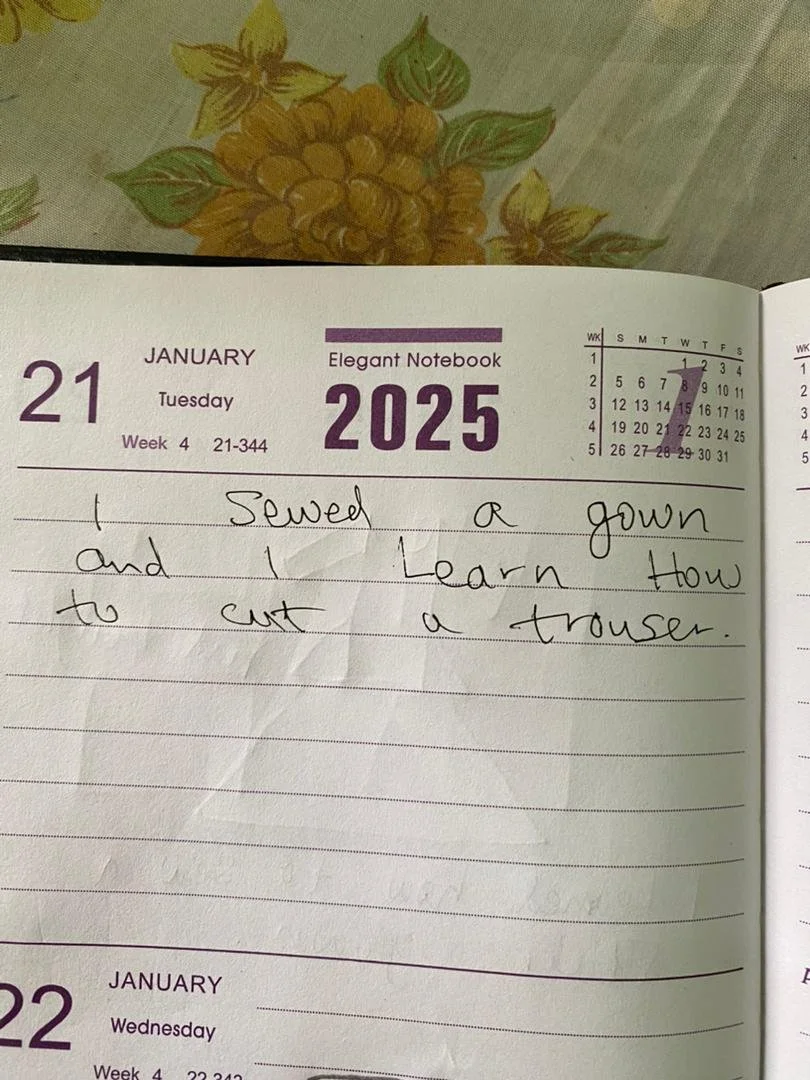 21
JANUARY
Tuesday
Week 4 21-344
Elegant Notebook
2025
WK S M T W T F S
1 1 2 3 4
2 5 6 7 8 9 10 11
3 12 13 14 15 16 17 18
4 19 20 21 22 23 24 25
5 26 27 28 29 30 31
1
I Sewed a gown
and I Learn How
to cut a trouser.
22
JANUARY
Wednesday
Week 4
WK
1
2
3
4
5